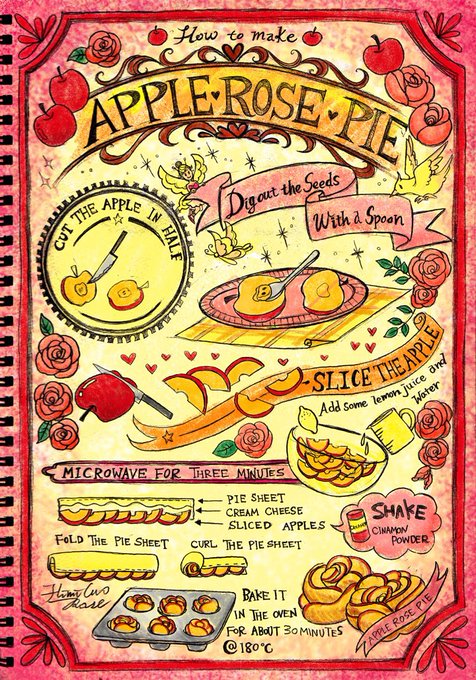 How to make
APPLE♥ROSE♥PIE
CUT THE APPLE IN HALF
Dig out the Seeds
With a Spoon
SLICE THE APPLE
Add some lemon juice and
Water
MICROWAVE FOR THREE MINUTES
PIE SHEET
CREAM CHEESE
SLICED APPLES
SHAKE
CINAMON
POWDER
FOLD THE PIE SHEET
CURL THE PIE SHEET
BAKE IT
IN THE OVEN
FOR ABOUT 30 MINUTES
@180°C
APPLE ROSE PIE
Rose